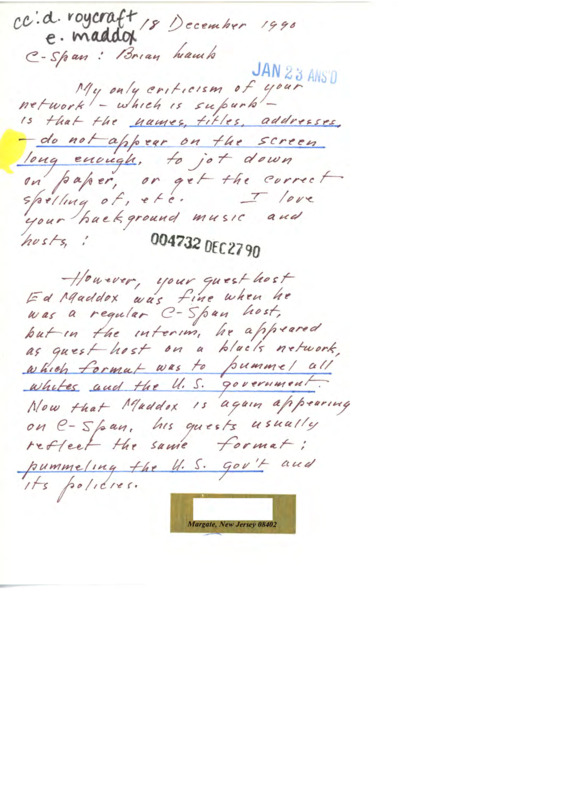 cc: d. roycraft
e. maddox
18 December 1990
C-Span : Brian Lamb
JAN 23 ANS'D
My only criticism of your
network - which is supurb -
is that the names, titles, addresses,
- do not appear on the screen
long enough, to jot down
on paper, or get the correct
spelling of, etc. I love
your background music and
hosts ;
004732 DEC 27 90
However, your guest host
Ed Maddox was fine when he
was a regular C-Span host,
but in the interim, he appeared
as guest host on a black network,
which format was to pummel all
whites and the U. S. government.
Now that Maddox is again appearing
on C-Span, his guests usually
reflect the same format ;
pummeling the U. S. gov't and
its policies.
Margate, New Jersey 08402